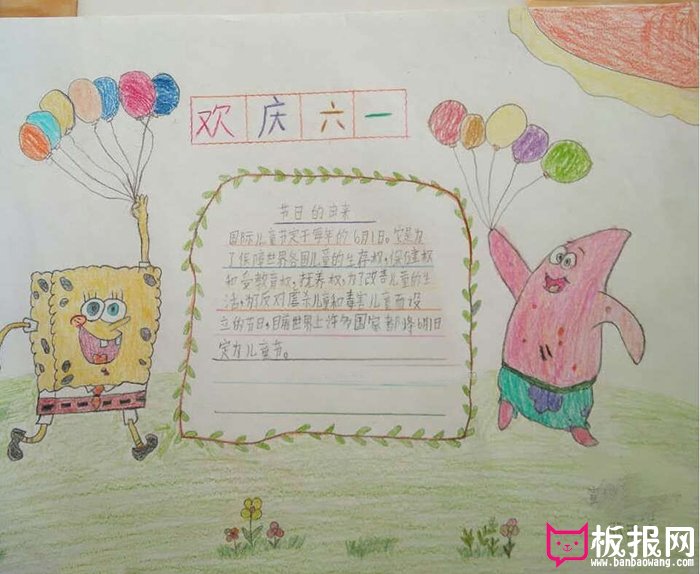 欢庆六一
节日的由来
国际儿童节定于每年的6月1日。它是为
了保障世界各国儿童的生存权,保健权
和受教育权,抚养权,为了改善儿童的生
活,为反对虐杀儿童和毒害儿童而设
立的节日,目前世界上许多国家都将6月1日
定为儿童节。
板报网
www.banbaowang.com